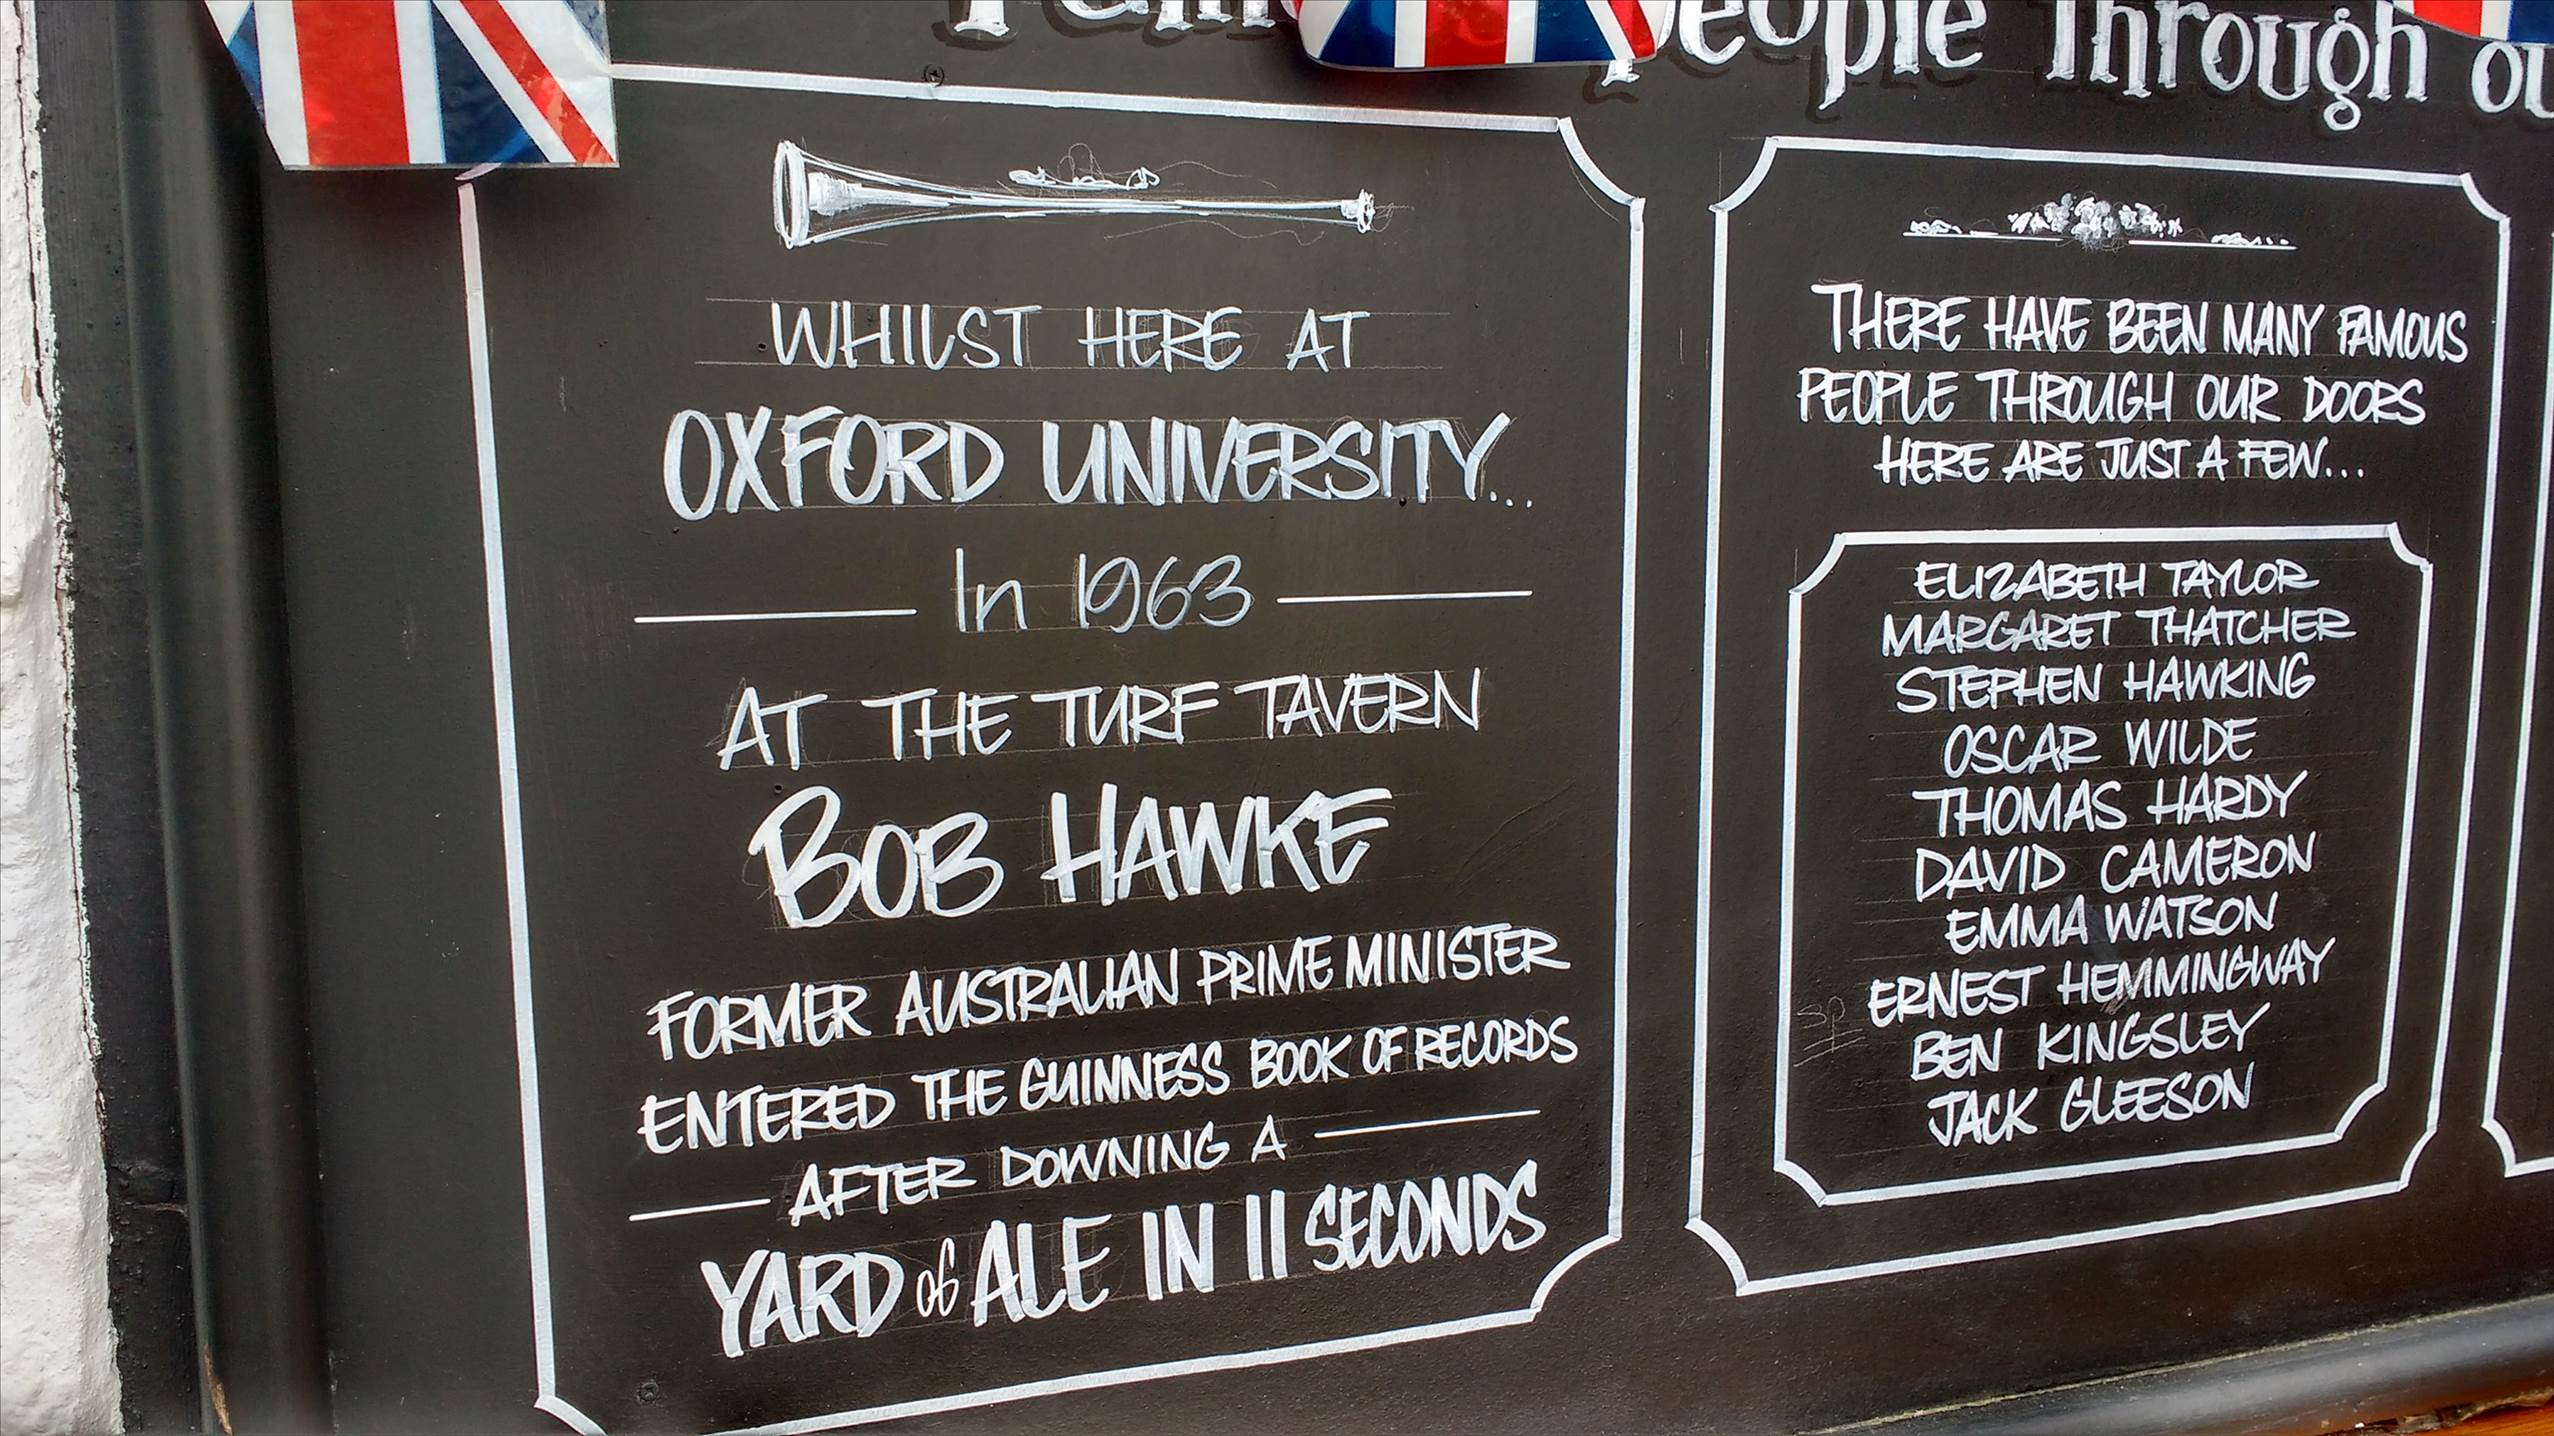 People Through
WHILST HERE AT
OXFORD UNIVERSITY...
In 1963
AT THE TURF TAVERN
BOB HAWKE
FORMER AUSTRALIAN PRIME MINISTER
ENTERED THE GUINNESS BOOK OF RECORDS
AFTER DOWNING A
YARD of ALE IN 11 SECONDS
THERE HAVE BEEN MANY FAMOUS
PEOPLE THROUGH OUR DOORS
HERE ARE JUST A FEW...
ELIZABETH TAYLOR
MARGARET THATCHER
STEPHEN HAWKING
OSCAR WILDE
THOMAS HARDY
DAVID CAMERON
EMMA WATSON
SP ERNEST HEMMINGWAY
BEN KINGSLEY
JACK GLEESON